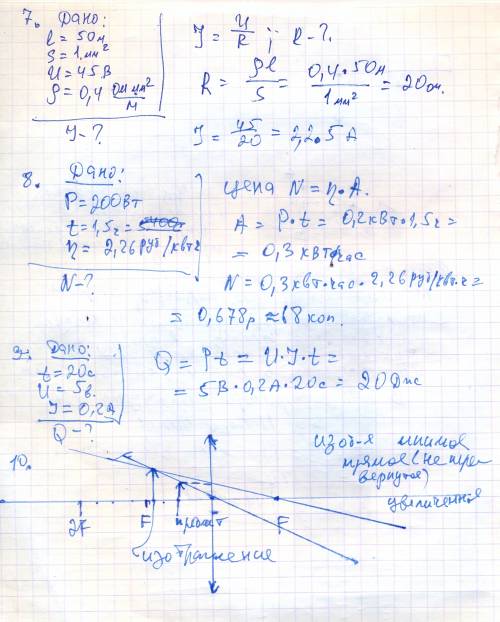 7. Дано:
l = 50м
S = 1мм²
U = 45В
ρ = 0,4 Ом мм²/м
I - ?
I = U/R ; R - ?.
R = ρl/S = 0,4 · 50м/1мм² = 20ом.
I = 45/20 = 2,2.5 А
8. Дано:
P = 200Вт
t = 1,5ч =
η = 2,26 руб/квт.ч
N - ?
цена N = η · А.
А = P · t = 0,2квт·1,5ч =
= 0,3 квт час
N = 0,3квт·час · 2,26руб/квт·ч =
= 0,678р ≈ 68 коп.
9. Дано:
t = 20с
U = 5в.
I = 0,2А
Q - ?
Q = Pt = U·I·t =
= 5В·0,2А·20с = 20Дж
10.
изоб-е мнимое
прямое (не пере
вернутое)
увеличенное
2F F предмет F
изображение